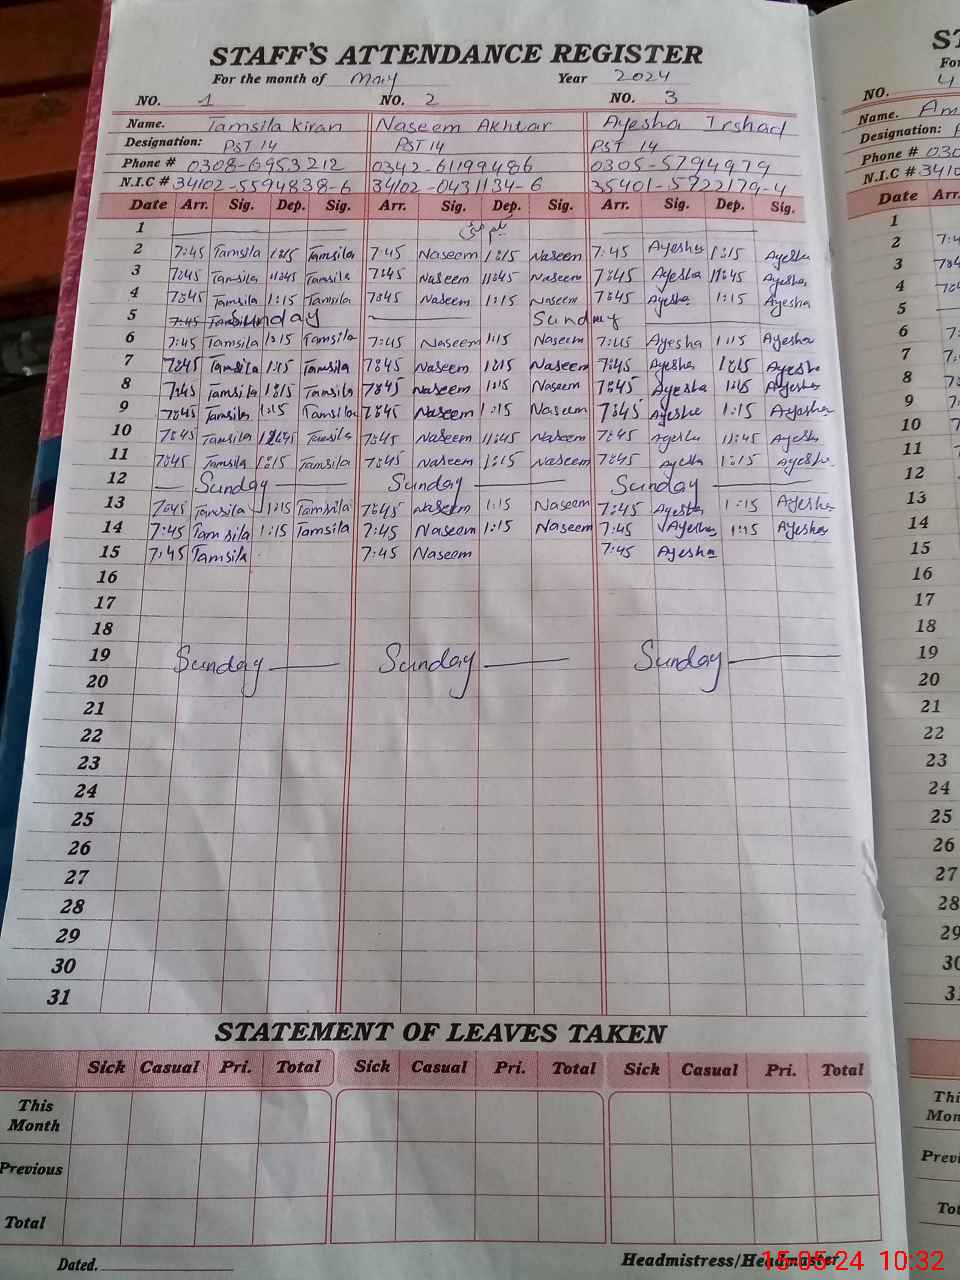 STAFF'S ATTENDANCE REGISTER
For the month of May Year 2024
NO. 1 NO. 2 NO. 3
Name. Tamsila Kiran Naseem Akhtar Ayesha Irshad
Designation: PST 14 PST 14 PST 14
Phone # 0308-6953212 0342-61199486 0305-5794979
N.I.C # 34102-5594838-6 34102-0431134-6 35401-5722179-4
Date Arr. Sig. Dep. Sig. Arr. Sig. Dep. Sig. Arr. Sig. Dep. Sig.
1
2 7:45 Tamsila 1:15 Tamsila 7:45 Naseem 1:15 Naseem 7:45 Ayesha 1:15 Ayesha
3 7:45 Tamsila 11:45 Tamsila 7:45 Naseem 11:45 Naseem 7:45 Ayesha 11:45 Ayesha
4 7:45 Tamsila 1:15 Tamsila 7:45 Naseem 1:15 Naseem 7:45 Ayesha 1:15 Ayesha
5 7:45 Sunday Sunday
6 7:45 Tamsila 1:15 Tamsila 7:45 Naseem 1:15 Naseem 7:45 Ayesha 1:15 Ayesha
7 7:45 Tamsila 1:15 Tamsila 7:45 Naseem 1:15 Naseem 7:45 Ayesha 1:15 Ayesha
8 7:45 Tamsila 1:15 Tamsila 7:45 Naseem 1:15 Naseem 7:45 Ayesha 1:15 Ayesha
9 7:45 Tamsila 1:15 Tamsila 7:45 Naseem 1:15 Naseem 7:45 Ayesha 1:15 Ayesha
10 7:45 Tamsila Tamsila 7:45 Naseem 11:45 Naseem 7:45 Ayesha 11:45 Ayesha
11 7:45 Tamsila 1:15 Tamsila 7:45 Naseem 1:15 Naseem 7:45 Ayesha 1:15 Ayesha
12 Sunday Sunday Sunday
13 7:45 Tamsila 1:15 Tamsila 7:45 Naseem 1:15 Naseem 7:45 Ayesha 1:15 Ayesha
14 7:45 Tamsila 1:15 Tamsila 7:45 Naseem 1:15 Naseem 7:45 Ayesha 1:15 Ayesha
15 7:45 Tamsila 7:45 Naseem 7:45 Ayesha
16
17
18
19 Sunday Sunday Sunday
20
21
22
23
24
25
26
27
28
29
30
31
STATEMENT OF LEAVES TAKEN
Sick Casual Pri. Total Sick Casual Pri. Total Sick Casual Pri. Total
This Month
Previous
Total
Dated. Headmistress/Headmaster
15-05-24 10:32
NO.
Name.
Designation:
Phone #
N.I.C #
Date
1
2
3
4
5
6
7
8
9
10
11
12
13
14
15
16
17
18
19
20
21
22
23
24
25
26
27
28